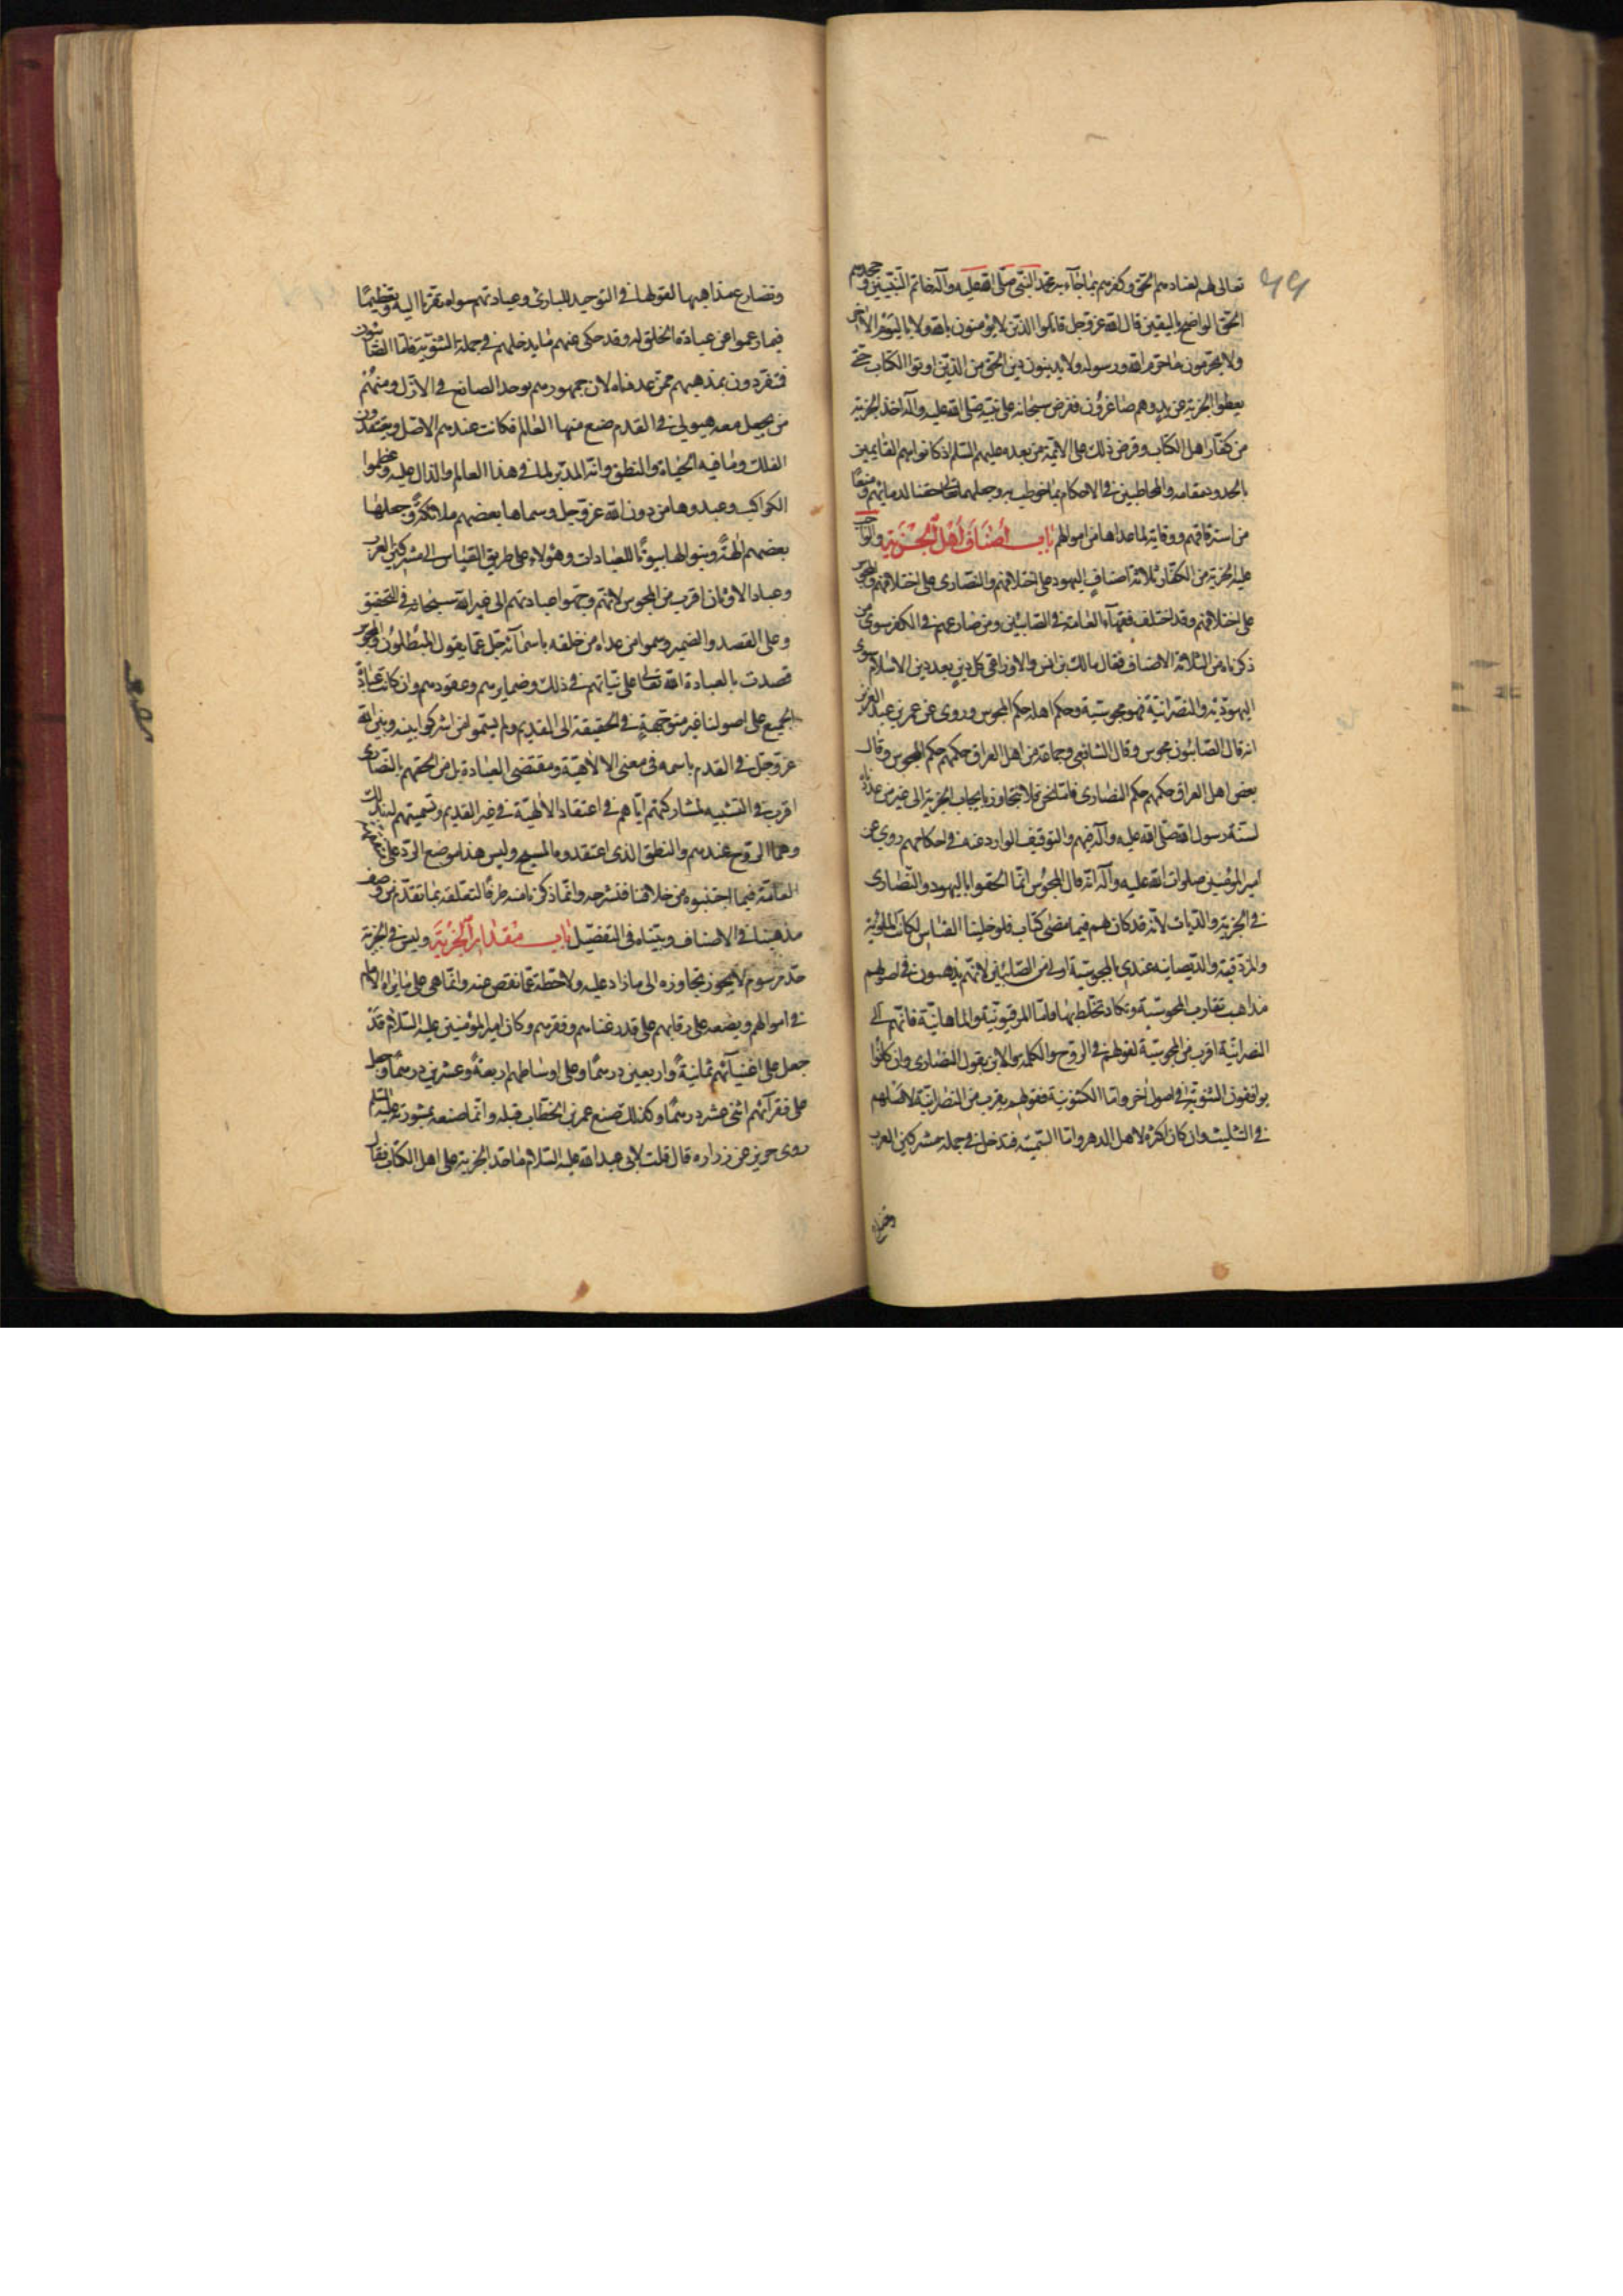 تعالى لهم لعنادهم الحق وكفرهم بما جاء به محمد النبي صلى الله عليه وآله خاتم النبيين وجحدهم
الحق الواضح باليقين قال الله عز وجل قاتلوا الذين لا يؤمنون بالله ولا باليوم الآخر
ولا يحرمون ما حرم الله ورسوله ولا يدينون دين الحق من الذين اوتوا الكتاب حتى
يعطوا الجزية عن يد وهم صاغرون ففرض سبحانه على نبيه صلى الله عليه وآله اخذ الجزية
من كفار اهل الكتاب وفرض ذلك على الائمة من بعده عليهم السلم اذ كانوا هم القايمين
بالحدود مقامه والمخاطبين في الاحكام بما خوطب به وجعلها تعالى حقنا لدمائهم ومنعا
من استرقاقهم ووقاية لما عداها من اموالهم باب اصناف اهل الجزية والواجب
عليه الجزية من الكفار ثلاثة اصناف اليهود على اختلافهم والنصارى على اختلافهم والمجوس
على اختلافهم وقد اختلف فقهاء العامة في الصابئين ومن ضارعهم في الكفر سوى من
ذكرناه من الثلاثة الاصناف فقال مالك بن انس والاوزاعي كل دين بعد دين الاسلام سوى
اليهودية والنصرانية فهو مجوسية وحكم اهله حكم المجوس وروى عن عمر بن عبد العزيز
انه قال الصابئون مجوس وقال الشافعي وجماعة من اهل العراق حكمهم حكم المجوس وقال
بعض اهل العراق حكمهم حكم النصارى فاما نحن فلا نتجاوز بايجاب الجزية الى غير من عددناه
لسنة رسول الله صلى الله عليه وآله فيهم والتوقيف الوارد عنه في احكامهم روى عن
امير المؤمنين صلوات الله عليه وآله انه قال المجوس انما الحقوا باليهود والنصارى
في الجزية والديات لانه قد كان لهم فيما مضى كتاب فلو خلينا القياس لكانت المانوية
والمزدقية والديصانية عندي بالمجوسية اولى من الصابئين لانهم يذهبون في اصولهم
مذاهب تقارب المجوسية وتكاد تختلط بها فاما المرقونية والماهانية فانهم الى
النصرانية اقرب من المجوسية لقولهم في الروح والكلمه والابن بقول النصارى وان كانوا
يوافقون الثنوية في اصول اخر واما الكثنوينية فقولهم يقرب من النصرانية لاصلهم
في التثليث وان كان اكثره لاهل الدهر واما السمنية فتدخل في جملة مشركي العرب
وتضارع مذاهبها لقولها في التوحيد للبارئ وعبادتهم سواه تقربا اليه وتعظيما
فيما زعموا عن عبادة الخلق له وقد حكى عنهم ما يدخلهم في جملة الثنوية فاما الصابئون
فتفردون بمذهبهم ممن عددناه لان جمهورهم يوحد الصانع في الازل ومنهم
من يجعل معه هيولى في القدم صنع منها العالم فكانت عندهم الاصل ويعتقدون
الفلك وما فيه الحياة والنطق وانه المدبر لما في هذا العالم والدال عليه وعظموا
الكواكب وعبدوها من دون الله عز وجل وسماها بعضهم ملائكة وجعلها
بعضهم آلهة وبنوا لها بيوتا للعبادات وهؤلاء على طريق القياس الى مشركي العرب
وعباد الاوثان اقرب من المجوس لانهم وجهوا عبادتهم الى غير الله سبحانه في التحقيق
وعلى القصد والضمير وسموا من عداه من خلقه باسمائه جل عما يقول المبطلون والمجوس
قصدت بالعبادة الله تعالى على نياتهم في ذلك وضمايرهم وعقودهم وان كانت عبادة
الجميع على اصولنا غير متوجهة في الحقيقة الى القديم ولم يسموا من اشركوا بينه وبين الله
عز وجل في القدم باسمه في معنى الالاهية ومقتضى العبادة بل من الحقهم بالنصارى
اقرب في التشبيه لمشاركتهم اياهم في اعتقاد الالهية في غير القديم وتسميتهم له بذلك
وهما الروح عندهم والنطق الذي اعتقدوه المسيح وليس هذا موضع الرد على
العامة فيما اجتنبوه من خلافنا فنشرحه وانما ذكرنا منه طرفا لتعلقه بما تقدم من وصف
مذهبنا في الاصناف وبيناه في التفصيل باب مقدار الجزية وليس في الجزية
حد مرسوم لا يجوز تجاوزه الى ما زاد عليه ولا حطه عما نقص عنه وانما هي على ما يراه الامام
في اموالهم ويضعه على رقابهم على قدر غناهم وفقرهم وكان امير المؤمنين عليه السلام قد
جعل على اغنيائهم ثمانية واربعين درهما وعلى اوساطهم اربعة وعشرين درهما وجعل
على فقرائهم اثنى عشر درهما وكذلك صنع عمر بن الخطاب قبله وانما صنعه بمشورته عليه السلم
روى حريز عن زراره قال قلت لابي عبد الله عليه السلام ما حد الجزية على اهل الكتاب فقال